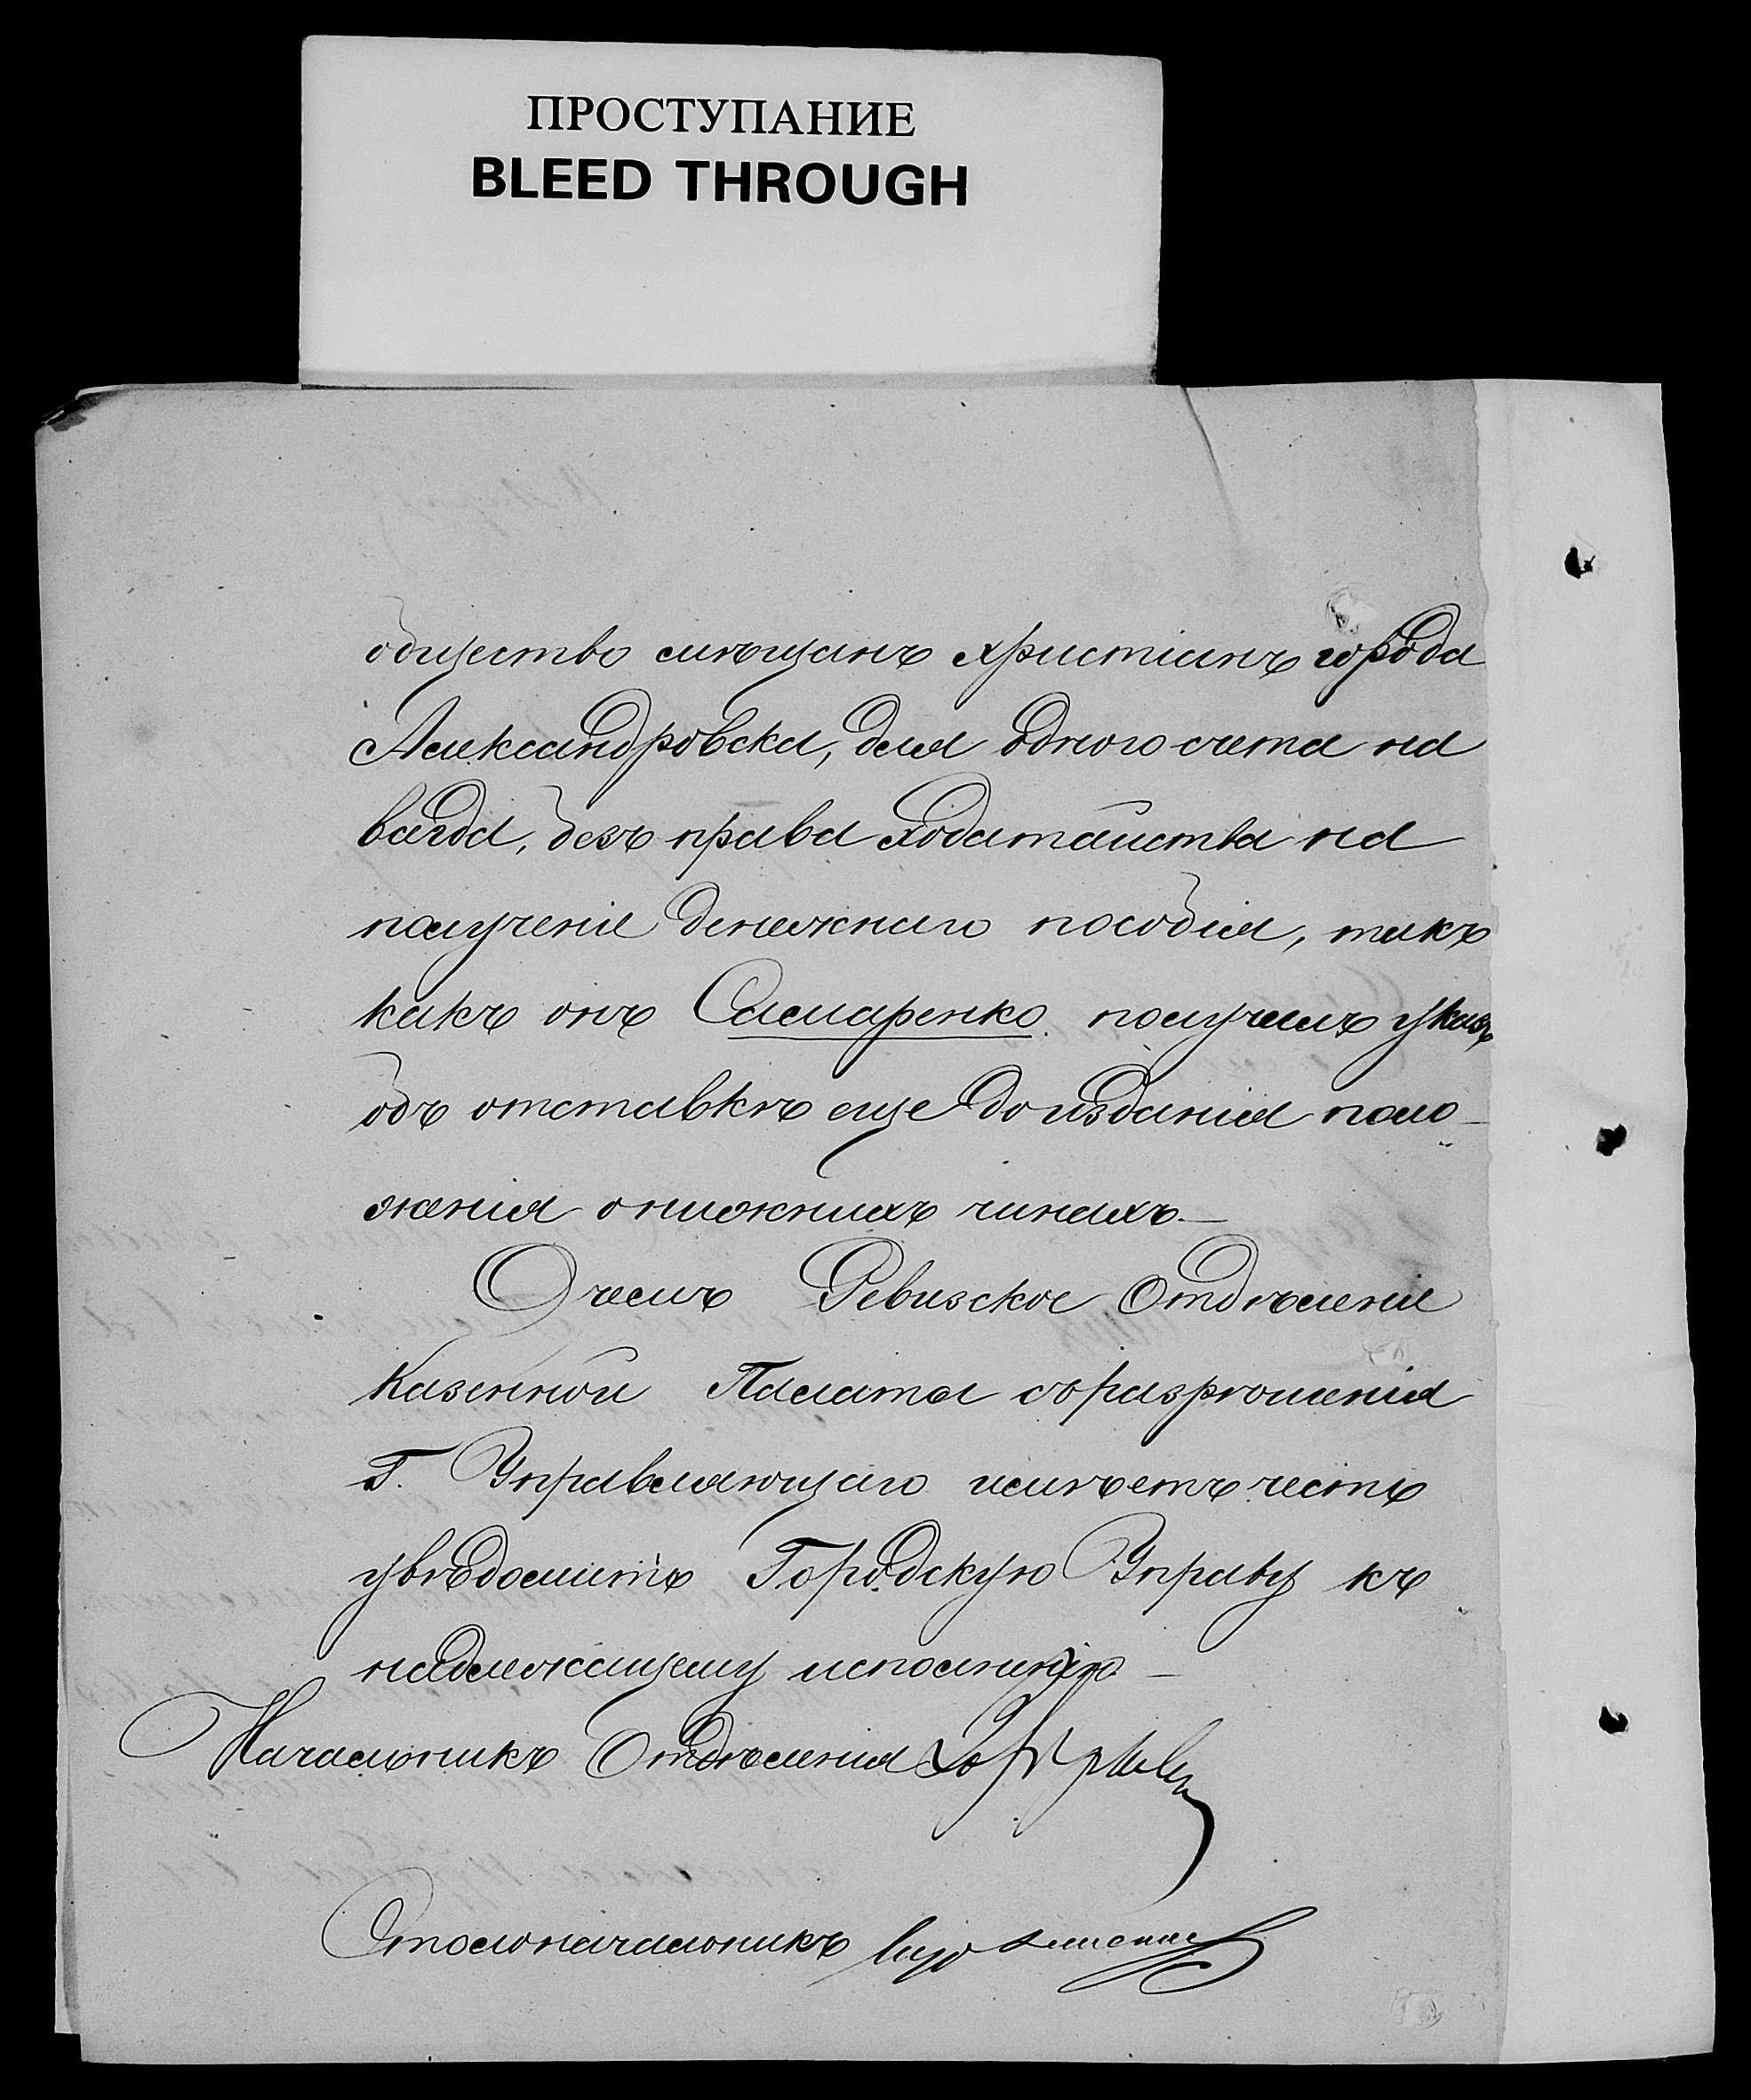 ПРОСТУПАНИЕ
BLEED THROUGH
общество мѣщанъ христіанъ города
Александровска, для одного счета на
всегда, безъ права ходатайства на
полученіе денежнаго пособія, такъ
какъ онъ Самаренко получилъ указъ
объ отставкѣ еще до изданія поло-
женія о нижнихъ чинахъ.—
О чемъ Ревизское Отдѣленіе
Казенной Палаты съ разрѣшенія
Г. Управляющаго имѣетъ честь
увѣдомить Городскую Управу къ
надлежащему исполненію.—
Начальникъ Отдѣленія
Столоначальникъ